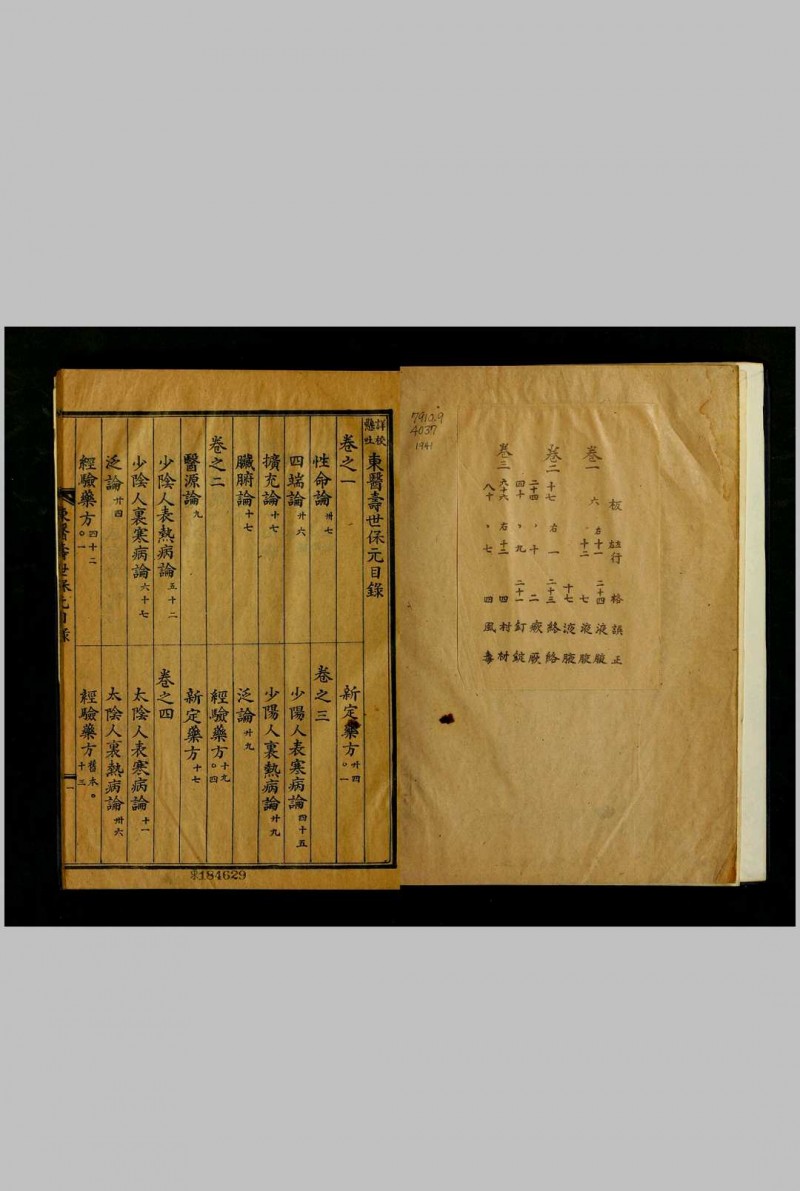 7910.9
4037
1941
板 行 格 誤 正
卷一 六 左 十一 二十四 液 腋
十二 七 液 腋
十七 液 腋
卷二 十七 右 一 二十三 絡
二十四 〃 十 二 厥
四十 〃 九 二十一 釘 錠
卷三 六十六 右 十三 四 村 材
八十 〃 七 四 風 毒
詳校懸吐 東醫壽世保元目錄
卷之一
性命論 卅七
四端論 廾六
擴充論 十七
臟腑論 十七
卷之二
醫源論 九
少陰人表熱病論 五十二
少陰人裏寒病論 六十七
泛論 廾四
經驗藥方 四十二。一
新定藥方 廾四。一
卷之三
少陽人表寒病論 四十五
少陽人裏熱病論 廾九
泛論 廾九
經驗藥方 十九。四
新定藥方 十七
卷之四
太陰人表寒病論 十一
太陰人裏熱病論 卅六
經驗藥方 舊本。十三
東醫壽世保元目錄
一
184629